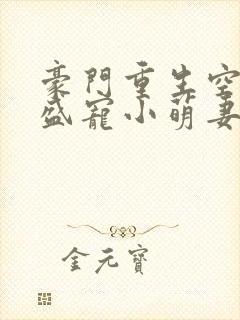 豪門重生空
盛寵小萌妻
金元寶